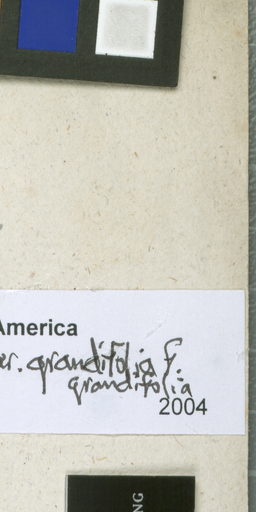 America
er. grandifolia f.
grandifolia
2004
NG